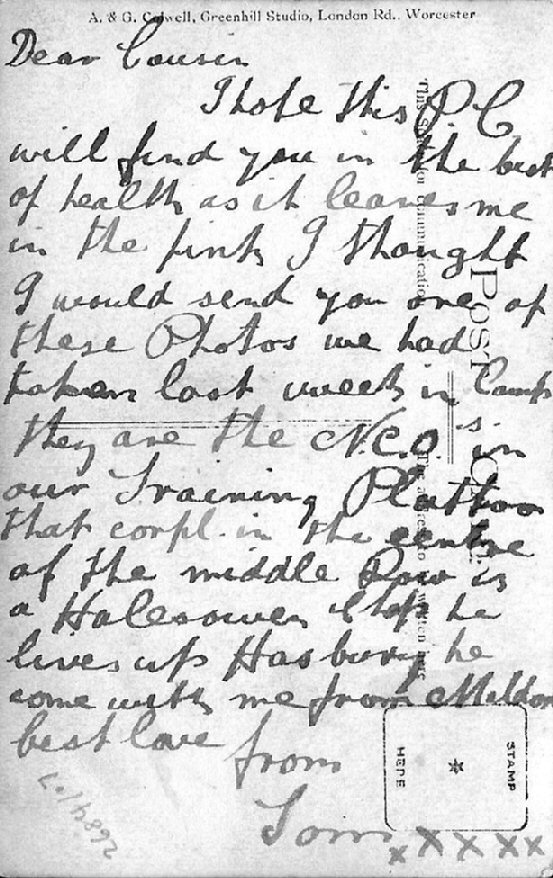 A. & G. Colwell, Greenhill Studio, London Rd., Worcester
Dear Cousin
I hope this P.C
will find you in the best
of health as it leaves me
in the pink I thought
I would send you one of
these Photos we had
taken last week in Camp
they are the N.C.O's in
our Training Platoon
that corpl. in the centre
of the middle Row is
a Halesowen Chap he
lives up Hasbury he
come with me from Maldon
best love from
Tom
x x x x x
POST CARD
STAMP
HERE